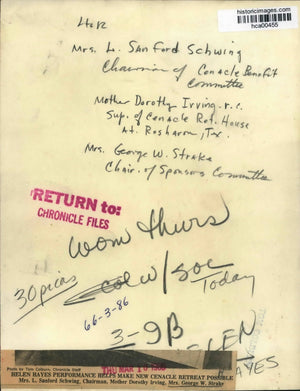 historicimages.com
hca00455
L to R
Mrs. L. Sanford Schwing
Chairman of Cenacle Benefit
Committee
Mother Dorothy Irving r.c.
Sup. of Cenacle Ret. House
at Rosharon, Tex.
Mrs. George W. Strake
Chair. of Sponsors Committee
RETURN to:
CHRONICLE FILES
wom thurs
30 picas
col w/soc
Today
66-3-86
3-9B
HELEN
HAYES
THU MAR
Photo by Tom Colburn, Chronicle Staff
HELEN HAYES PERFORMANCE HELPS MAKE NEW CENACLE RETREAT POSSIBLE
Mrs. L. Sanford Schwing, Chairman, Mother Dorothy Irving, Mrs. George W. Strake